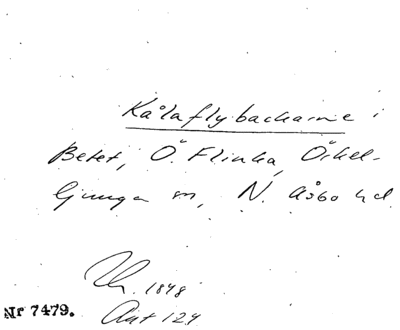 Kålaflybackarne i
Betet, Ö. Flinka, Örkel-
ljunga sn, N. Åsbo hd.
1848
Nr 7479.
Ant 124